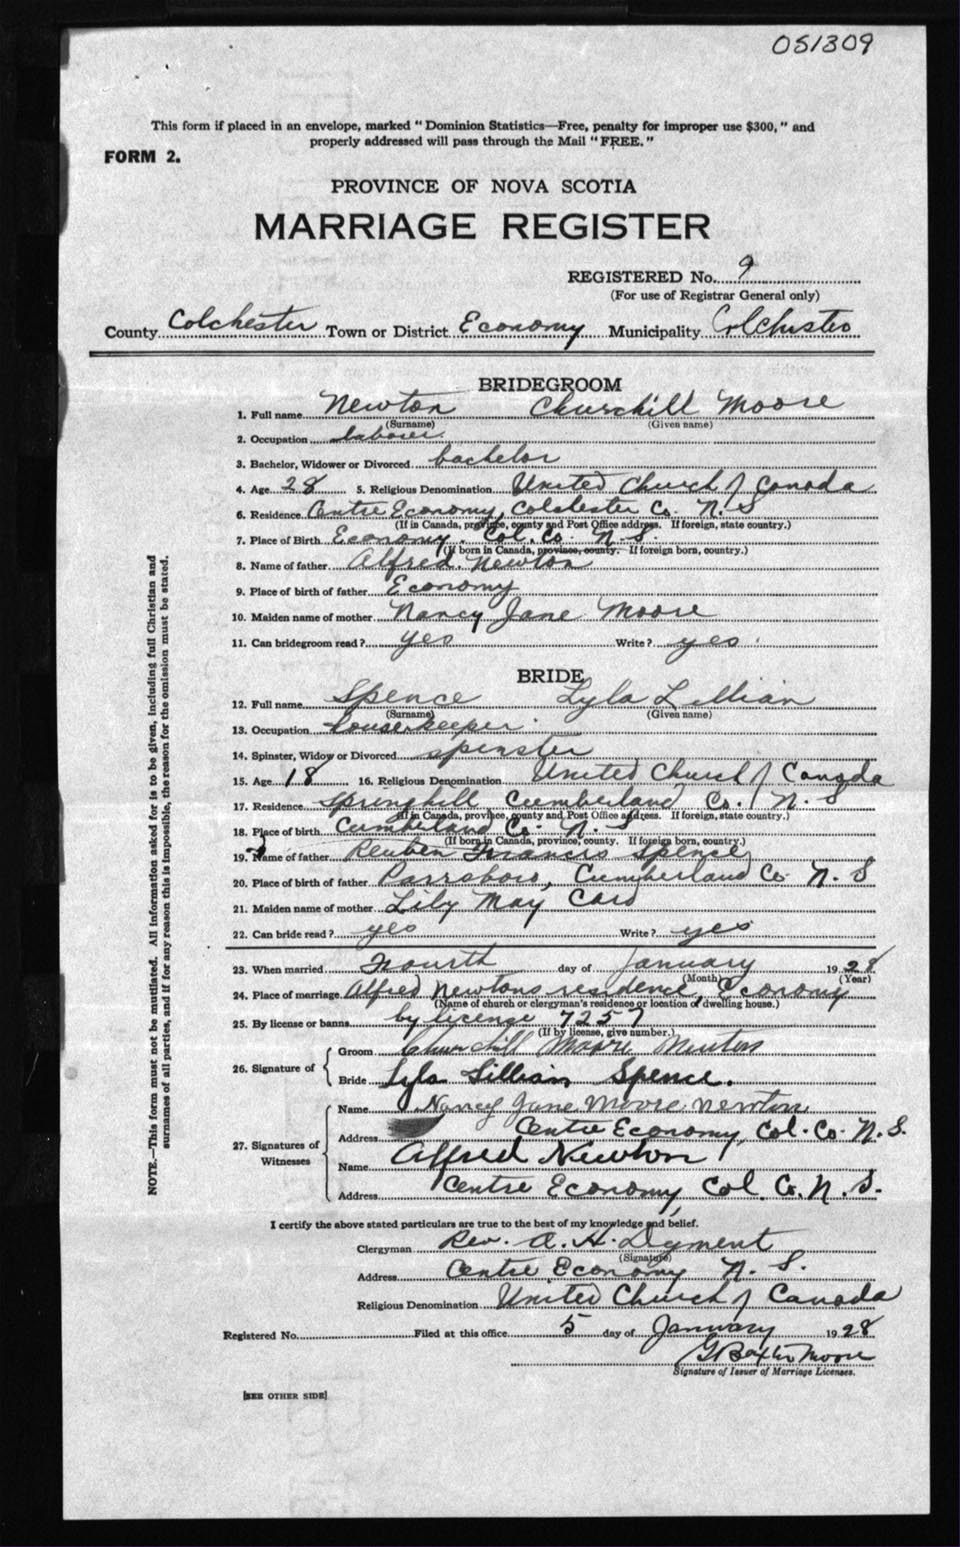 051309
This form if placed in an envelope, marked "Dominion Statistics—Free, penalty for improper use $300," and
properly addressed will pass through the Mail "FREE."
FORM 2.
PROVINCE OF NOVA SCOTIA
MARRIAGE REGISTER
REGISTERED No. 9
(For use of Registrar General only)
County Colchester Town or District Economy Municipality Colchester
BRIDEGROOM
1. Full name Newton Churchill Moore
(Surname) (Given name)
2. Occupation laborer
3. Bachelor, Widower or Divorced bachelor
4. Age 28 5. Religious Denomination United Church of Canada
6. Residence Centre Economy, Colchester Co N. S
(If in Canada, province, county and Post Office address. If foreign, state country.)
7. Place of Birth Economy. Col. Co. N. S.
(If born in Canada, province, county. If foreign born, country.)
8. Name of father Alfred Newton
9. Place of birth of father Economy
10. Maiden name of mother Nancy Jane Moore
11. Can bridegroom read? yes Write? yes.
BRIDE
12. Full name Spence Lyla Lillian
(Surname) (Given name)
13. Occupation housekeeper
14. Spinster, Widow or Divorced spinster
15. Age 18 16. Religious Denomination United Church of Canada
17. Residence Springhill Cumberland Co. N. S
(If in Canada, province, county and Post Office address. If foreign, state country.)
18. Place of birth Cumberland Co. N. S
(If born in Canada, province, county. If foreign born, country.)
19. Name of father Reuben Francis Spence
20. Place of birth of father Parrsboro, Cumberland Co. N. S
21. Maiden name of mother Lily May Card
22. Can bride read? yes Write? yes
23. When married Fourth day of January 1928
(Month) (Year)
24. Place of marriage Alfred Newtons residence, Economy
(Name of church or clergyman's residence or location of dwelling house.)
25. By license or banns by license 7257
(If by license, give number.)
26. Signature of Groom Churchill Moore Newton
Bride Lyla Lillian Spence.
27. Signatures of Witnesses
Name Nancy Jane Moore Newton
Address Centre Economy, Col. Co. N. S.
Name Alfred Newton
Address Centre Economy Col. Co. N. S.
I certify the above stated particulars are true to the best of my knowledge and belief.
Clergyman Rev. A. H. Dyment
(Signature)
Address Centre Economy N. S.
Religious Denomination United Church of Canada
Registered No. Filed at this office 5 day of January 1928
G Baxter Moore
Signature of Issuer of Marriage Licenses.
[SEE OTHER SIDE]
NOTE.—This form must not be mutilated. All information asked for is to be given, including full Christian and
surnames of all parties, and if for any reason this is impossible, the reason for the omission must be stated.